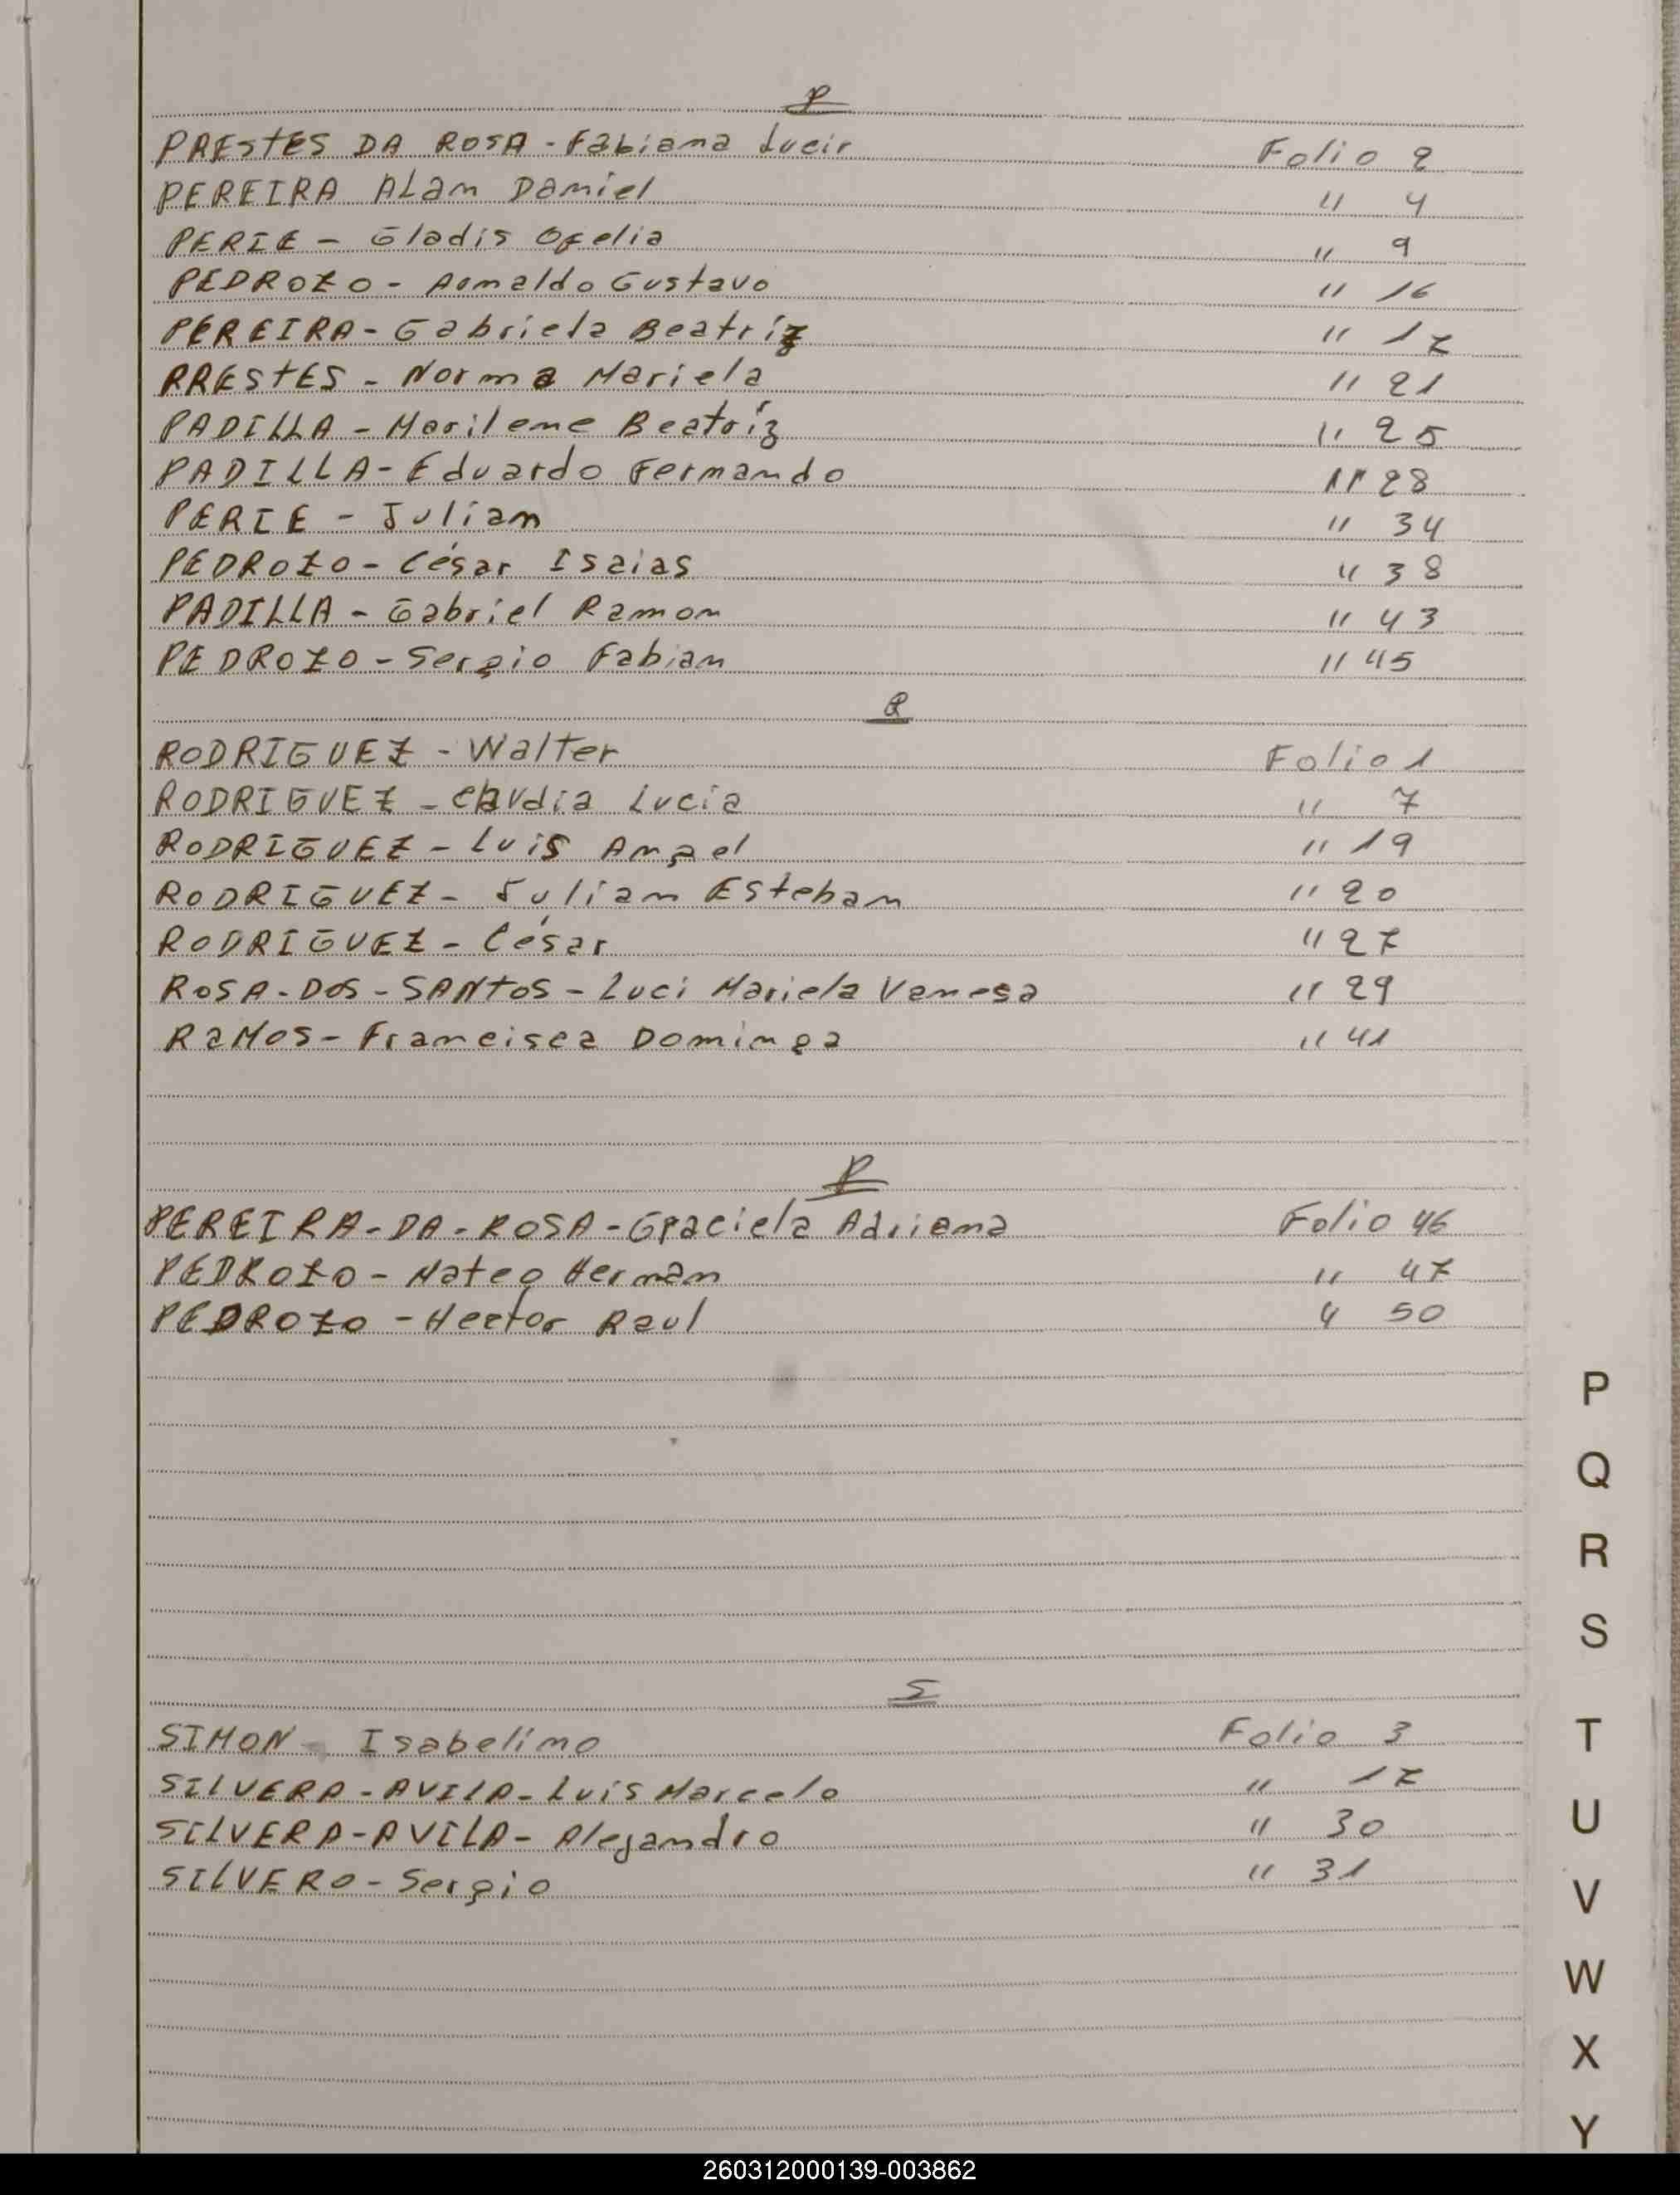 P
PRESTES DA ROSA - Fabiana Lucir Folio 2
PEREIRA ALan Daniel " 4
PERIE - Gladis Ofelia " 9
PEDROZO - Arnaldo Gustavo " 16
PEREIRA - Gabriela Beatriz " 17
PRESTES - Norma Mariela " 21
PADILLA - Marilene Beatríz " 25
PADILLA - Eduardo Fernando " 28
PERIE - Julian " 34
PEDROZO - César Isaias " 38
PADILLA - Gabriel Ramon " 43
PEDROZO - Sergio Fabian " 45
R
RODRIGUEZ - Walter Folio 1
RODRIGUEZ - Claudia Lucia " 7
RODRIGUEZ - Luis Angel " 19
RODRIGUEZ - Julian Esteban " 20
RODRIGUEZ - César " 27
ROSA - DOS - SANTOS - Luci Mariela Vanesa " 29
RaMOS - Francisca Dominga " 41
P
PEREIRA - DA - ROSA - Graciela Adriana Folio 46
PEDROZO - Mateo Hernan " 47
PEDROZO - Hector Raul " 50
S
SIMON - Isabelino Folio 3
SILVERA - AVILA - Luis Marcelo " 17
SILVERA - AVILA - Alejandro " 30
SILVERO - Sergio " 31
P
Q
R
S
T
U
V
W
X
Y
260312000139-003862